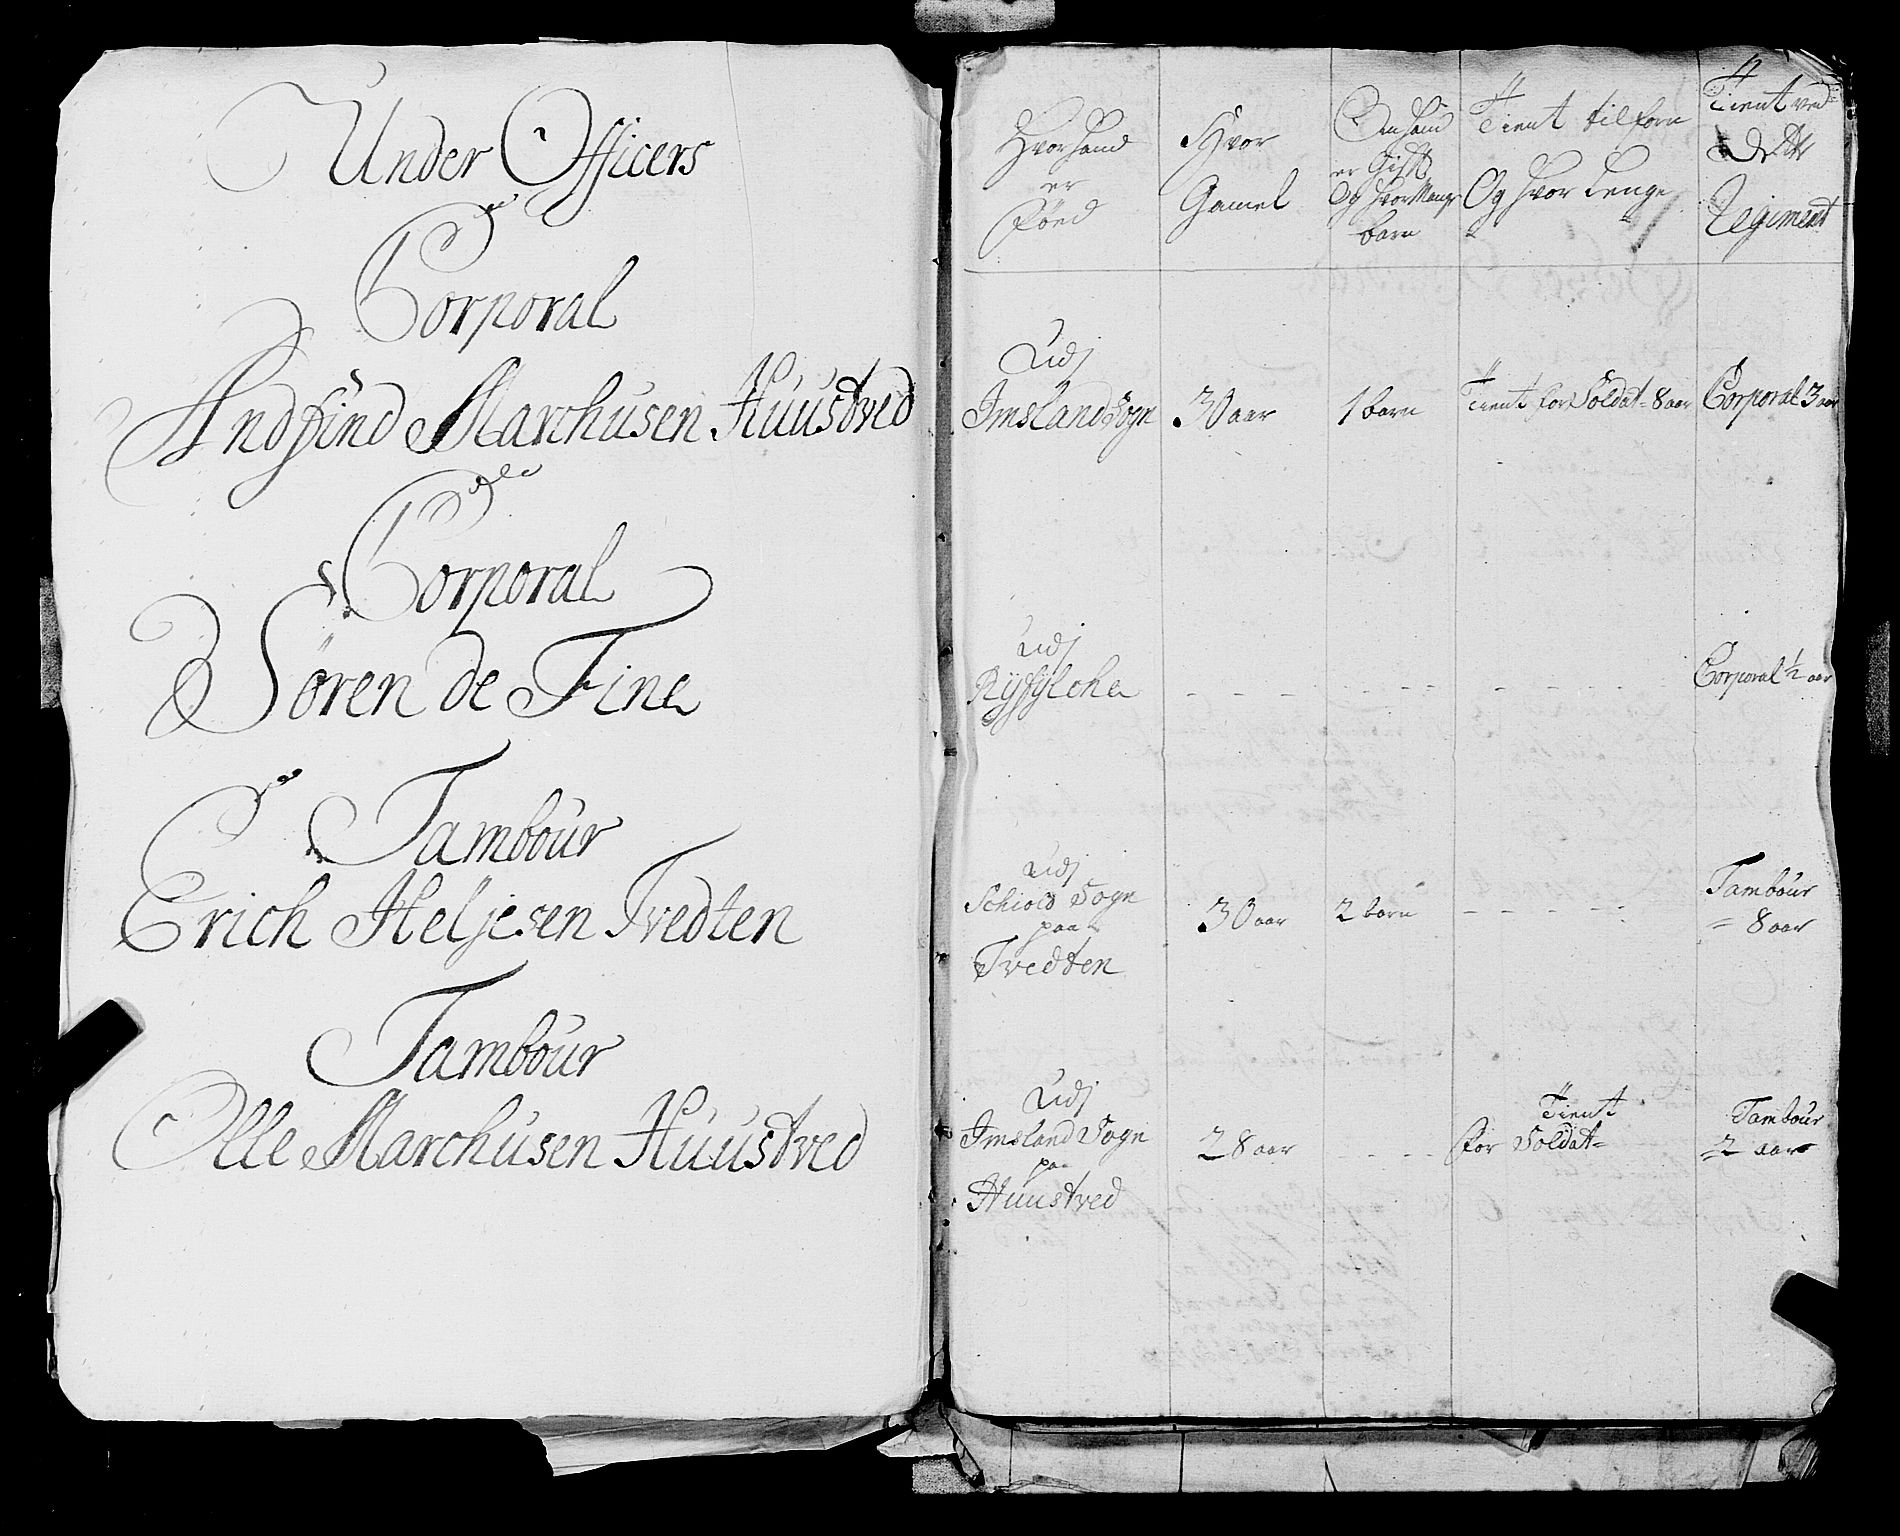 Under Officers
Corporal
Andfind Marchusen Huustved
Corporal
Søren de Fine
Tambour
Erich Heljesen Tvedten
Tambour
Olle Marchusen Huustved
Hvor hand
er
Føed
Hvor
Gamel
Om hand
er Gift
Og hvor Mange
barn
Tient tilforn
Og hvor Lenge
Tient ved
Dette
Regiment
Udj
Imsland Sogn
30 aar
1 barn
Tient for Soldat 8 aar
Corporal 3 aar
Udj
Ryfylche
Corporal ½ aar
Udj
Schiold Sogn
paa
Tvedten
30 aar
2 barn
Tambour
= 8 aar
Udj
Imsland Sogn
paa
Huustved
28 aar
Tient
for Soldat=
Tambour
=2 aar